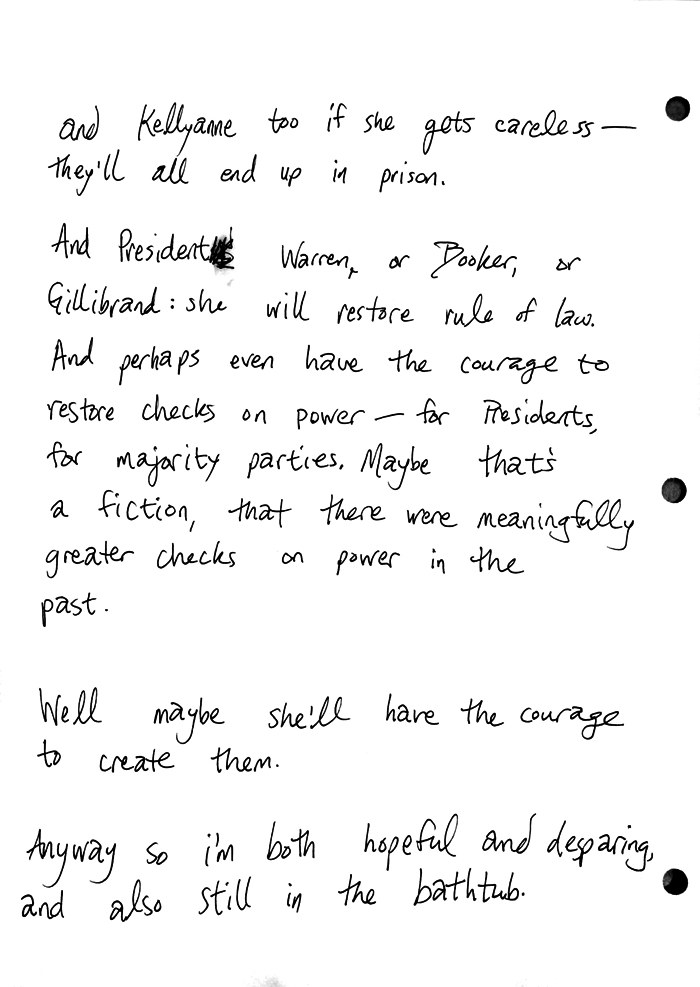 and Kellyanne too if she gets careless —
they'll all end up in prison.
And President Warren, or Booker, or
Gillibrand: she will restore rule of law.
And perhaps even have the courage to
restore checks on power — for Presidents,
for majority parties. Maybe that's
a fiction, that there were meaningfully
greater checks on power in the
past.
Well maybe she'll have the courage
to create them.
Anyway so i'm both hopeful and desparing,
and also still in the bathtub.